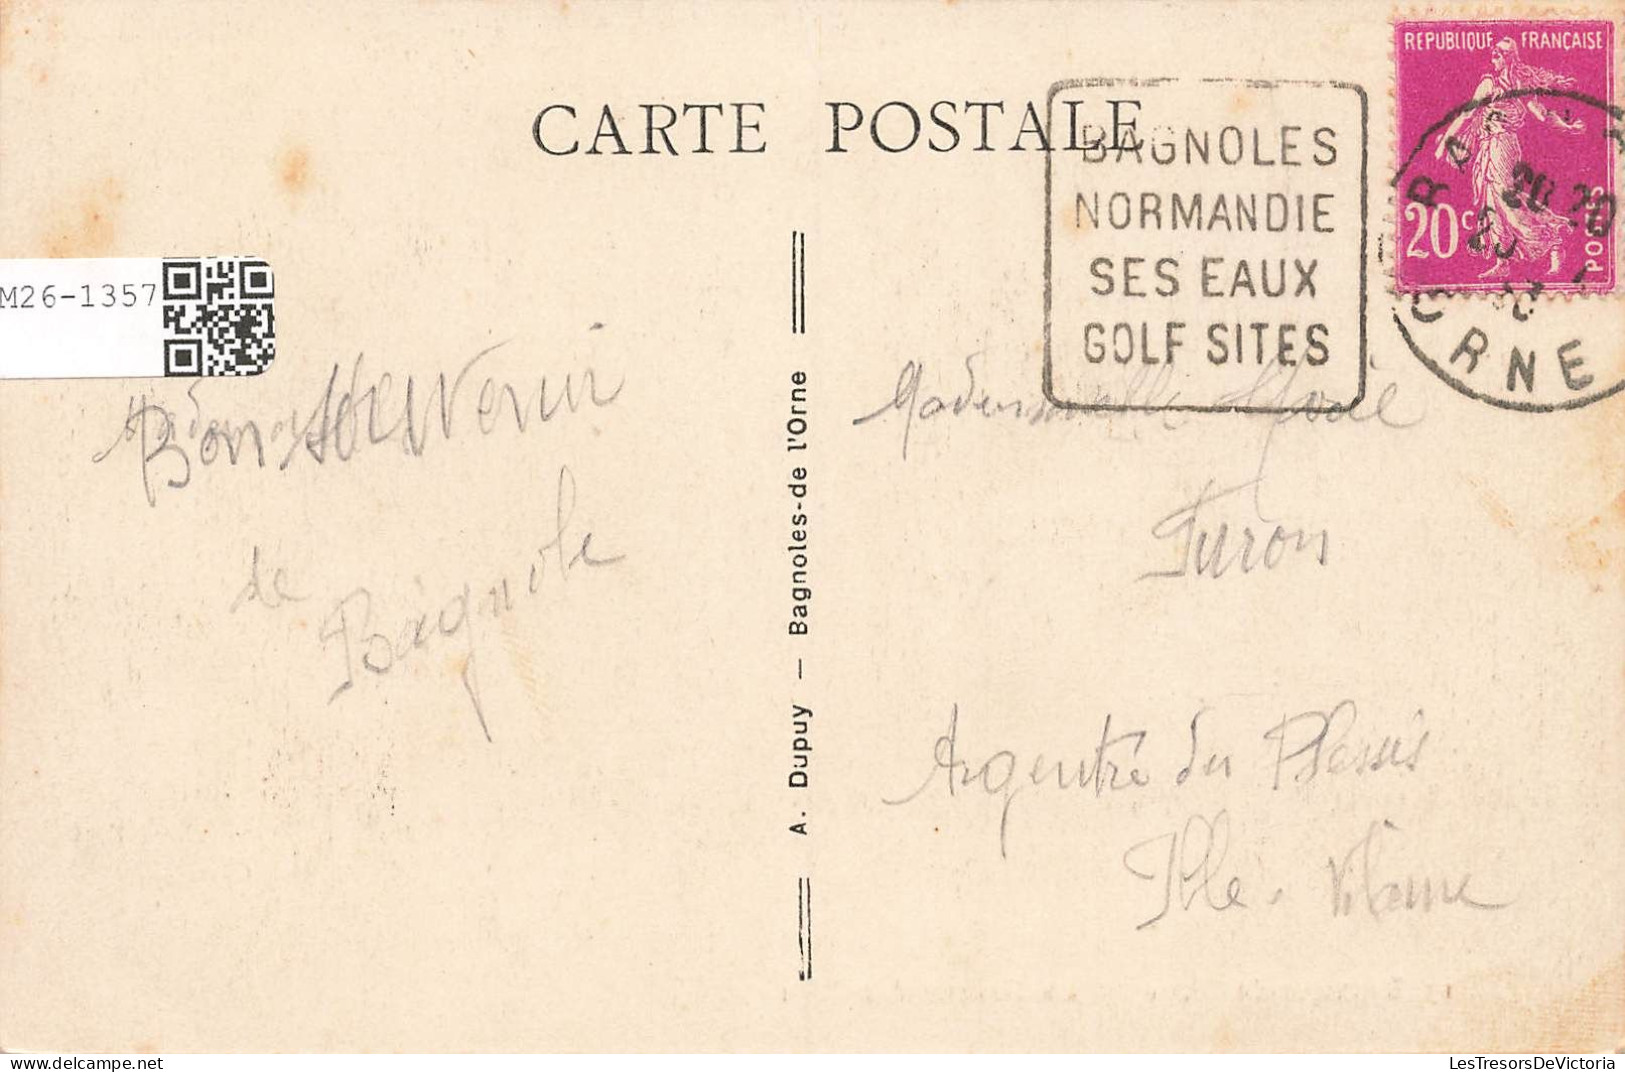 CARTE POSTALE
BAGNOLES
NORMANDIE
SES EAUX
GOLF SITES
REPUBLIQUE FRANÇAISE
20c
POSTES
ORNE
M26-1357
Bon Souvenir
de
Bagnole
A. Dupuy — Bagnoles-de l'Orne
Mademoiselle
Turon
Argentré du Plessis
Ille-Vilaine
LesTresorsDeVictoria